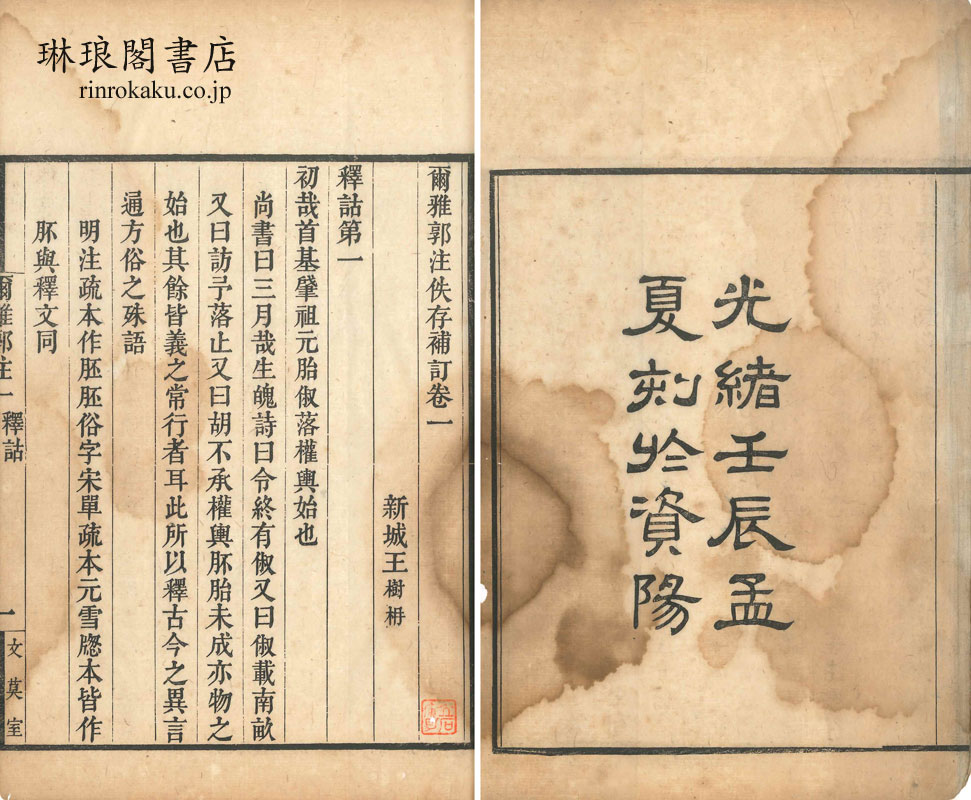 琳琅閣書店
rinrokaku.co.jp
光緒壬辰孟
夏刻於資陽
爾雅郭注佚存補訂卷一
新城王樹枏
釋詁第一
初哉首基肈祖元胎俶落權輿始也
尚書曰三月哉生魄詩曰令終有俶又曰俶載南畝
又曰訪予落止又曰胡不承權輿胚胎未成亦物之
始也其餘皆義之常行者耳此所以釋古今之異言
通方俗之殊語
明注疏本作胚胚俗字宋單疏本元雪牕本皆作
肧與釋文同
爾雅郭注一釋詁
一
文莫室